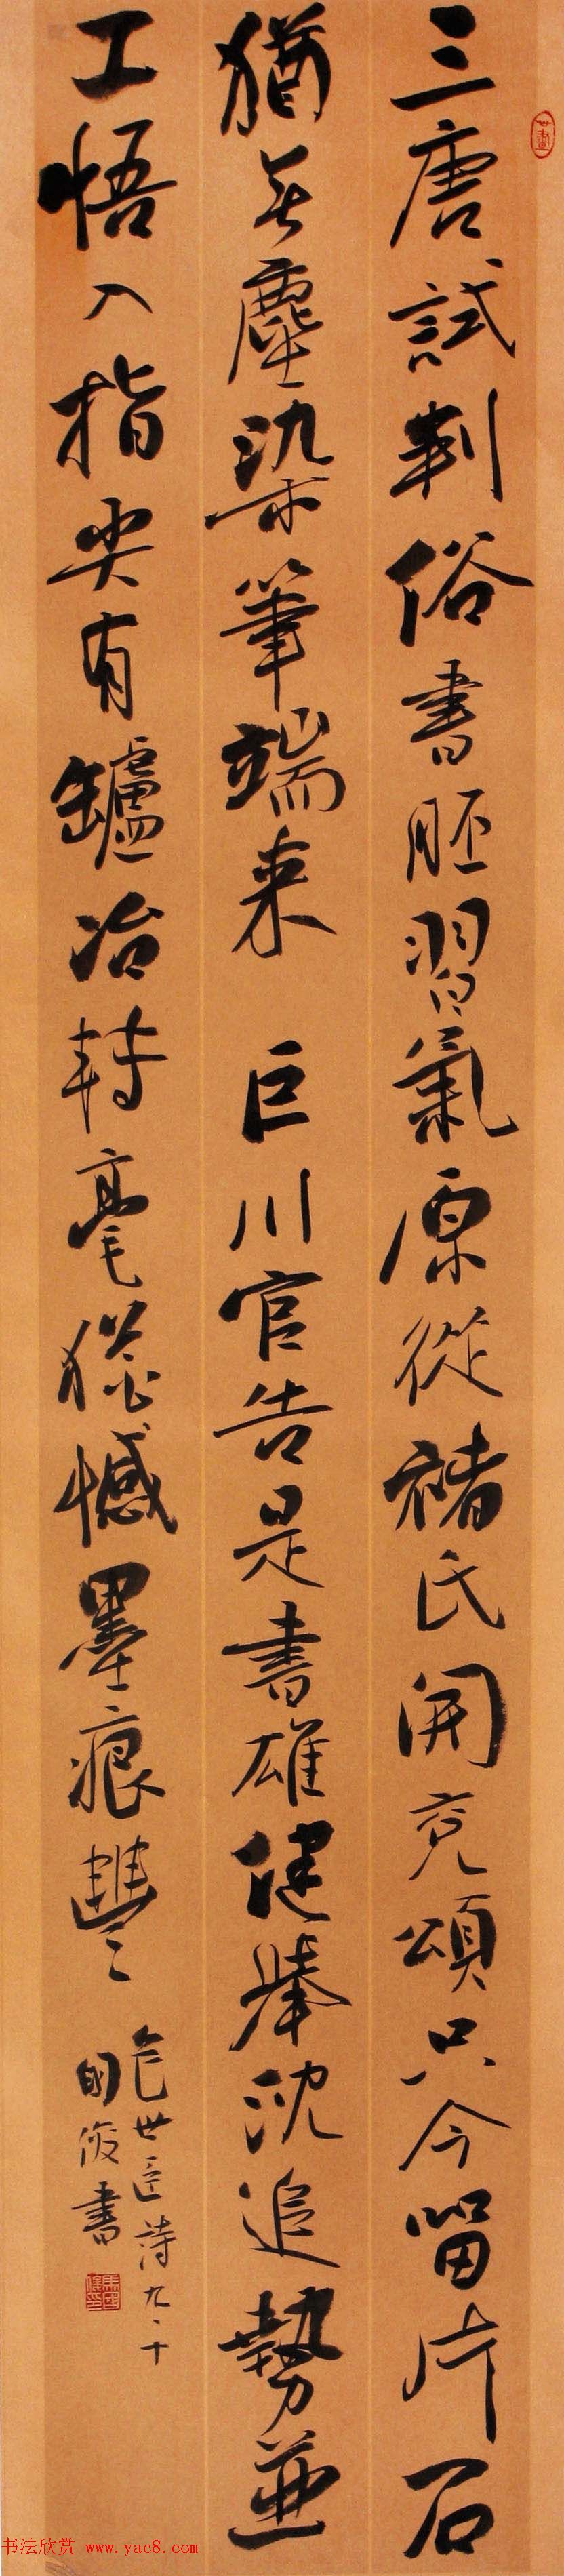 三唐試判俗書胚習氣原從褚氏開兗頌只今留片石
猶無塵染筆端来 巨川官告是書雄健舉沈追勢並
工悟入指尖有罏冶轉毫猶憾墨痕豐
包世臣詩九、十
国俊書
书法欣赏 www.yac8.com